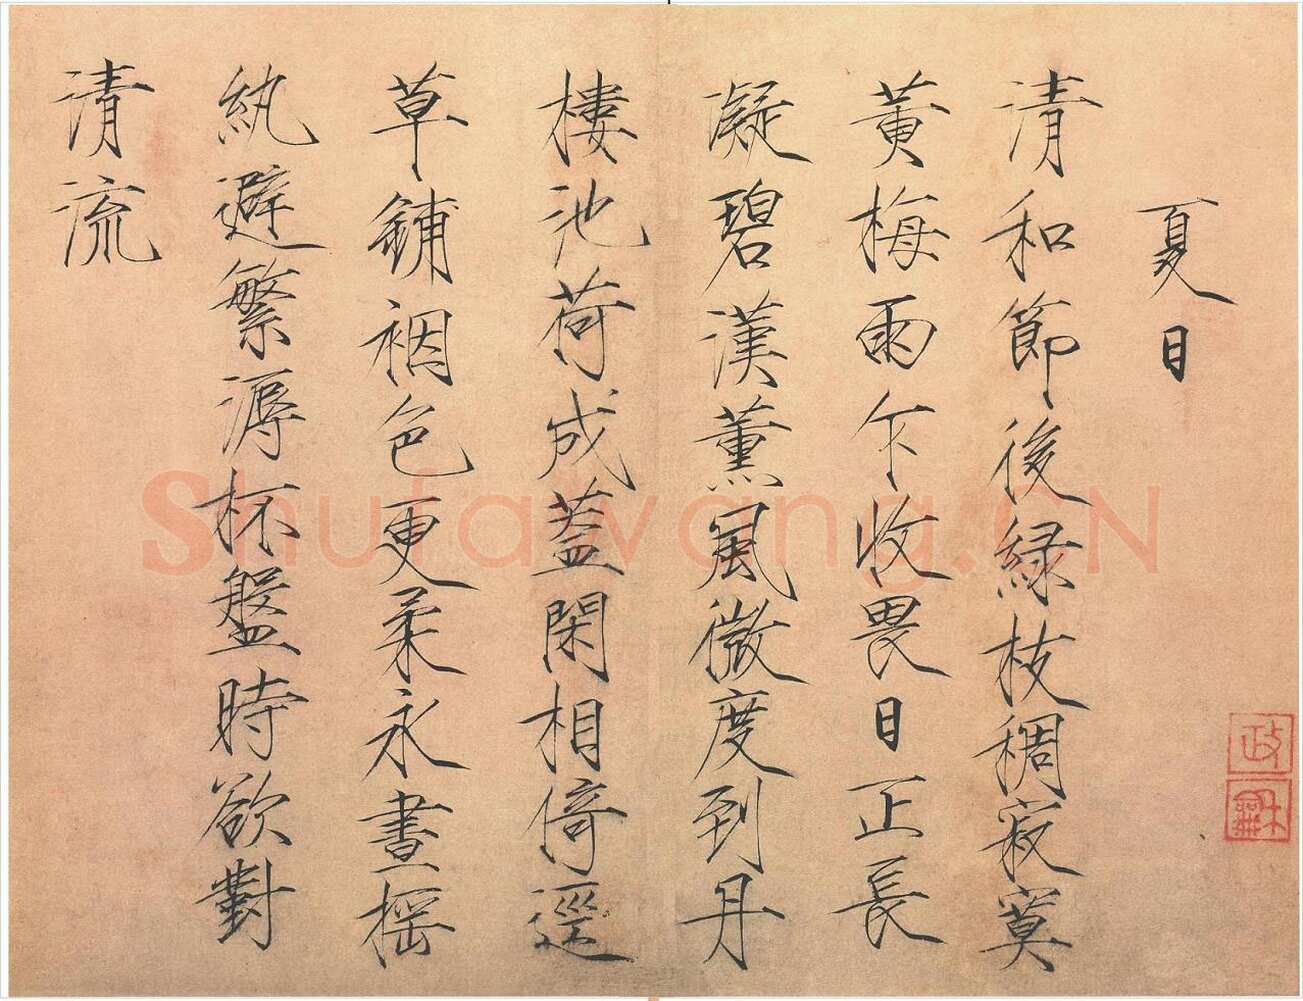 夏日
清和節後緑枝稠寂寞
黄梅雨乍收畏日正長
凝碧漢薰風微度到丹
樓池荷成蓋閑相倚逕
草鋪裀色更柔永晝揺
紈避繁溽杯盤時欲對
清流
政龢
Shufawang.CN